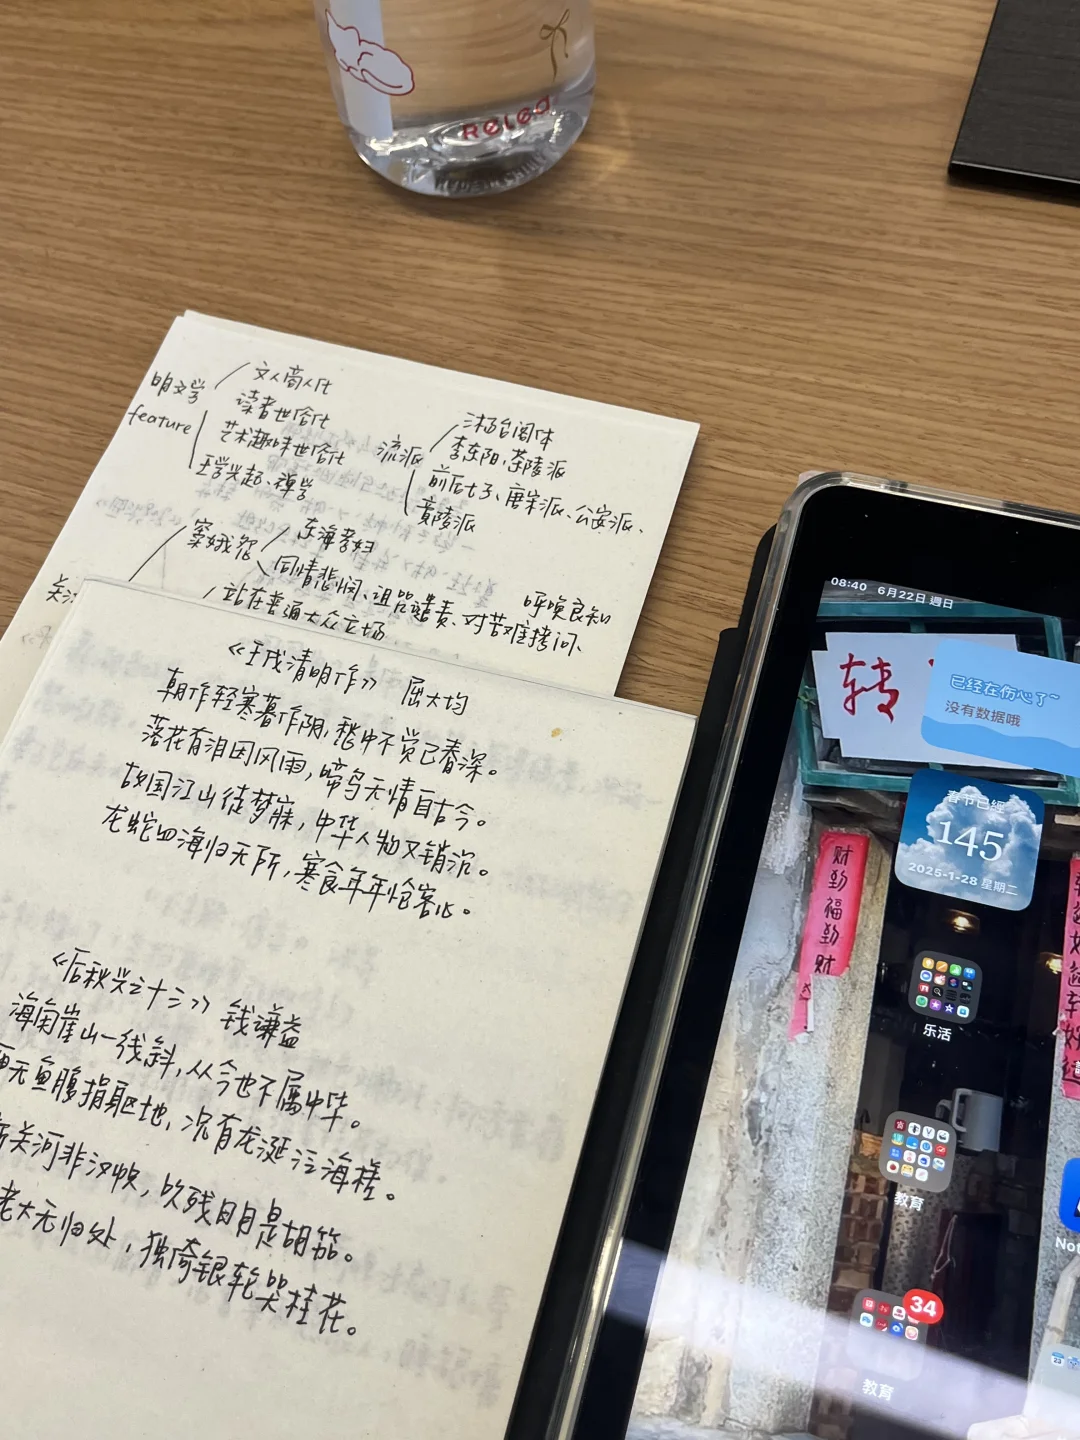 Relea
明文学
feature
文人商人化
读者世俗化
艺术趣味世俗化
王学兴起、禅学
流派
三杨台阁体
李东阳,茶陵派
前后七子、唐宋派、公安派、
竟陵派
窦娥怨
东海孝妇
同情悲悯、诅咒谴责、对苦难拷问、
呼唤良知
站在普通大众立场
关
《壬戌清明作》 屈大均
朝作轻寒暮作阴,愁中不觉已春深。
落花有泪因风雨,啼鸟无情自古今。
故国江山徒梦寐,中华人物又销沉。
龙蛇四海归无所,寒食年年怆客心。
《后秋兴之十三》 钱谦益
海角崖山一线斜,从今也不属中华。
更无鱼腹捐躯地,况有龙涎泛海槎。
关河非汉帜,吹残日月是胡笳。
老大无归处,独倚银轮哭桂花。
08:40 6月22日 週日
转
已经在伤心了~
没有数据哦
春节已經
145
2025-1-28 星期二
财勤福勤财
乐活
教育
Not
34
教育
23